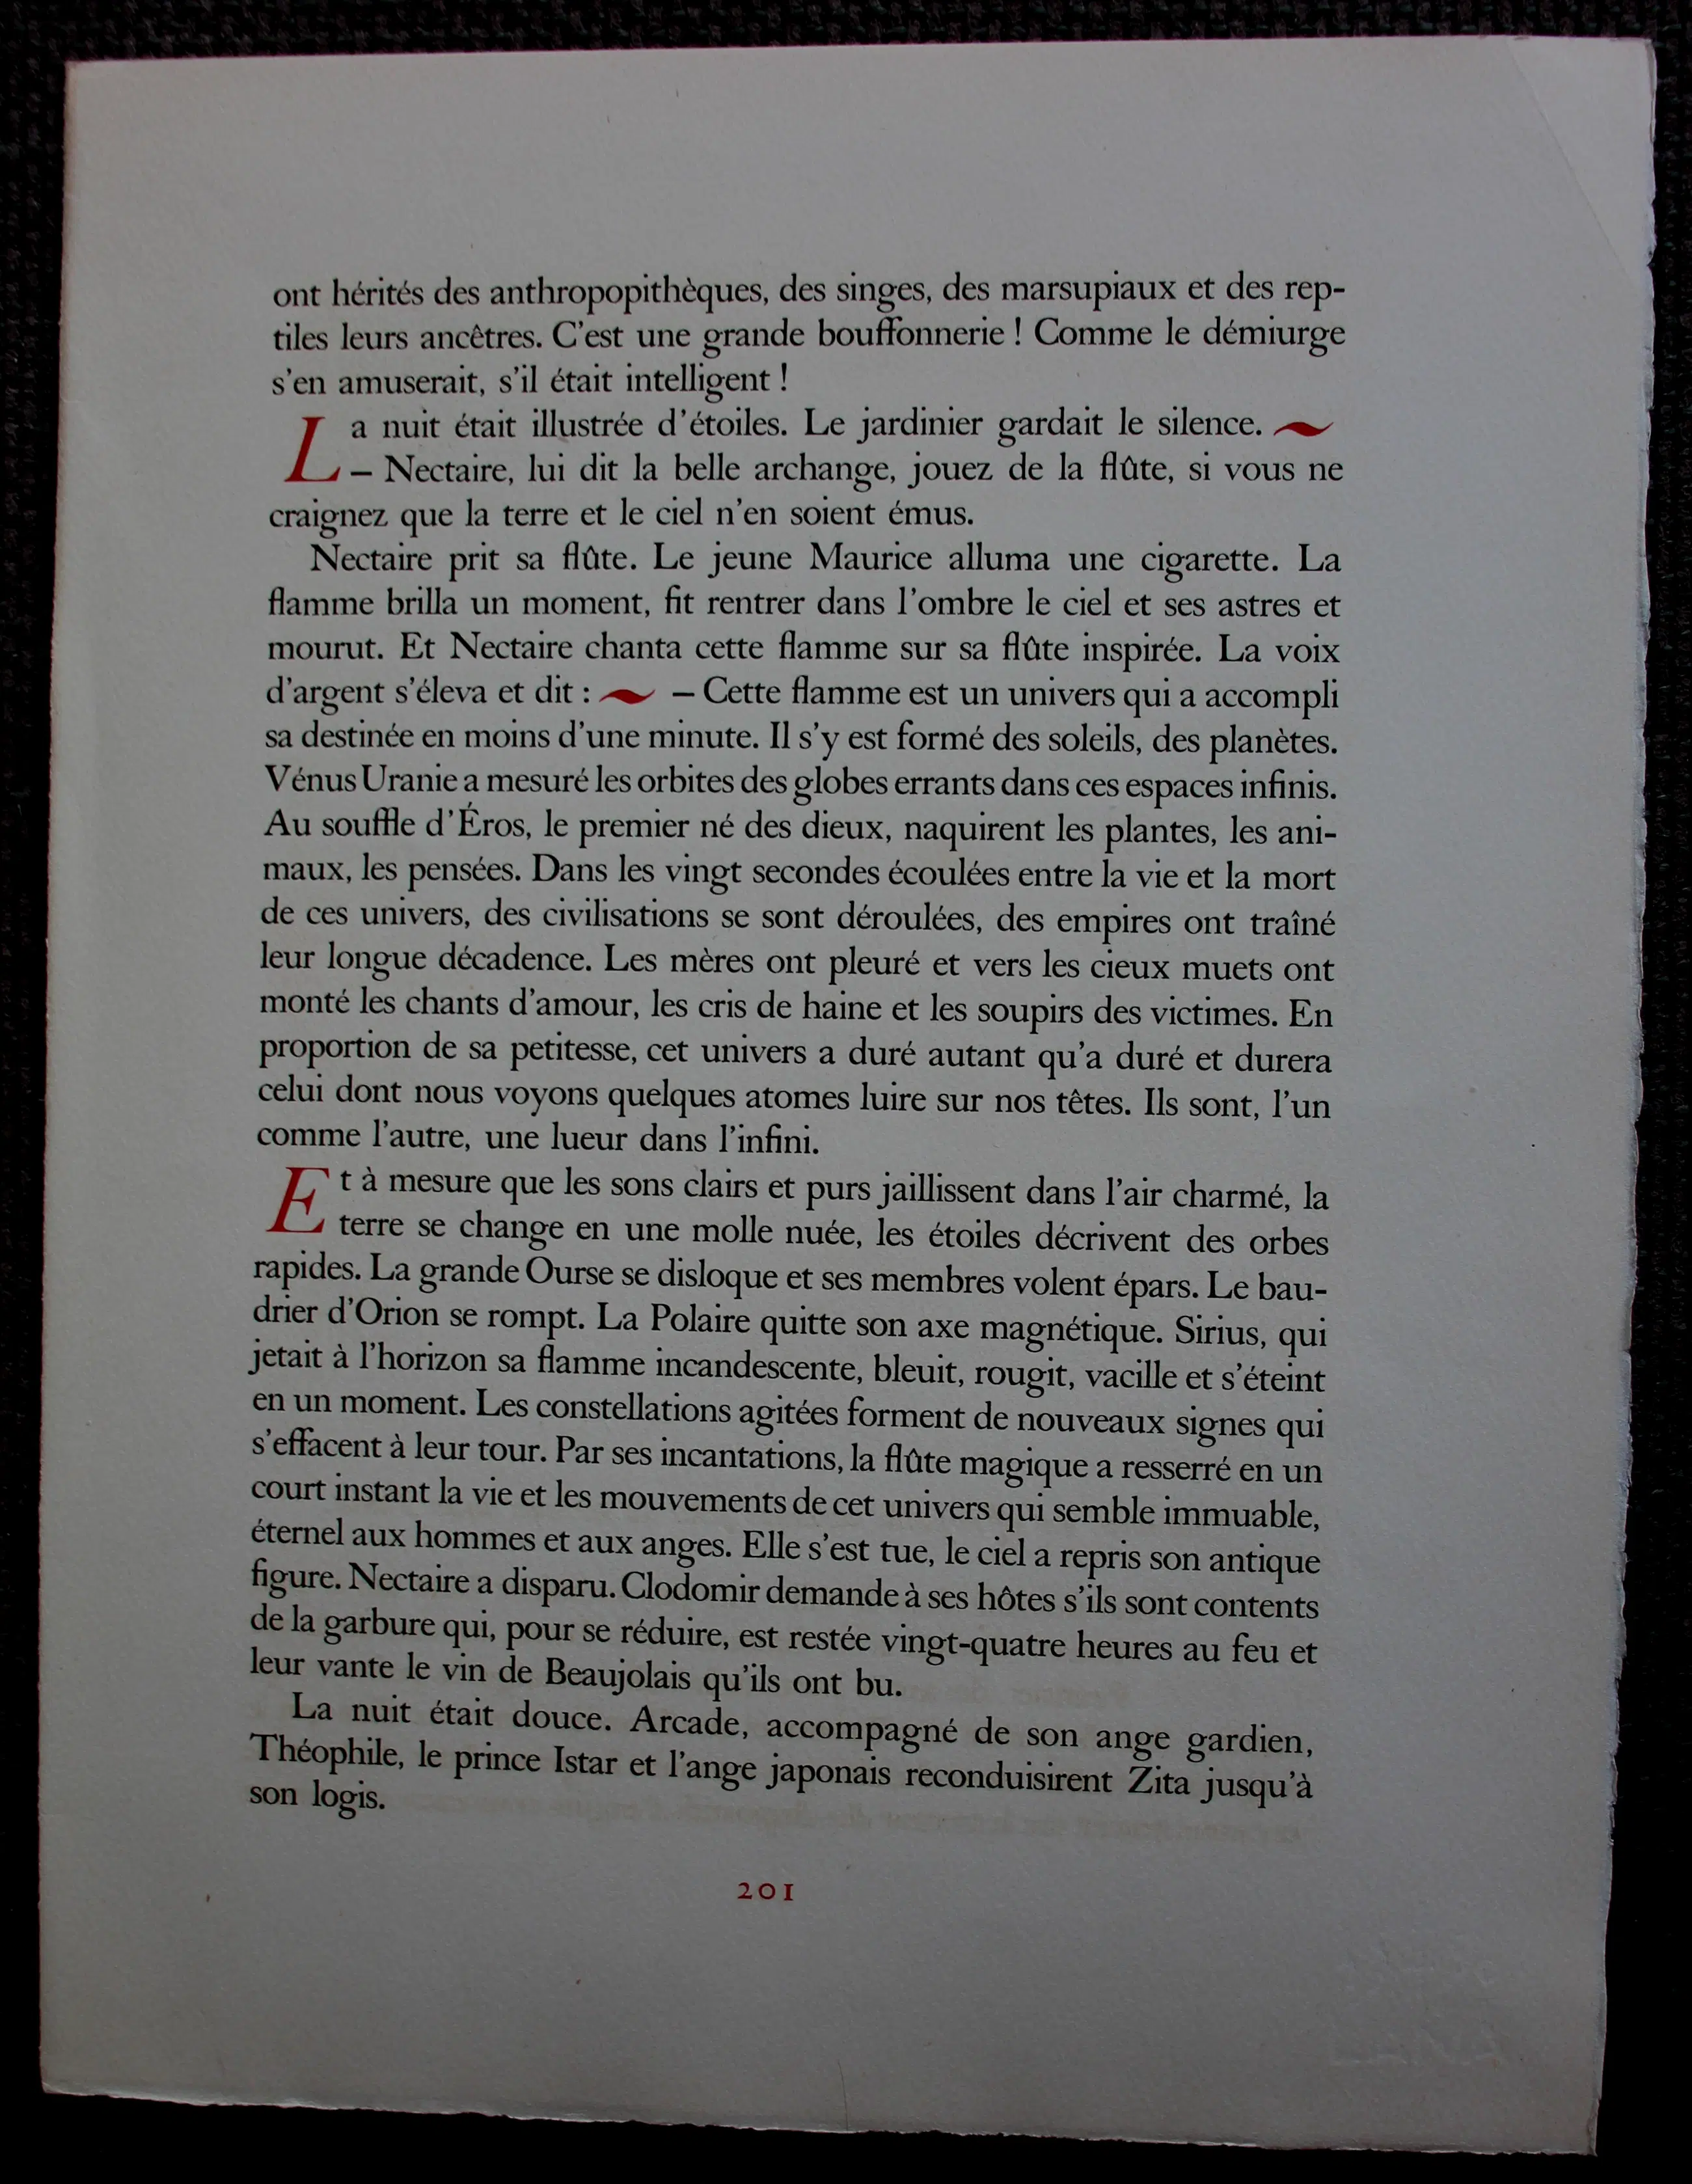 ont hérités des anthropopithèques, des singes, des marsupiaux et des rep-
tiles leurs ancêtres. C'est une grande bouffonnerie ! Comme le démiurge
s'en amuserait, s'il était intelligent !
La nuit était illustrée d'étoiles. Le jardinier gardait le silence.
– Nectaire, lui dit la belle archange, jouez de la flûte, si vous ne
craignez que la terre et le ciel n'en soient émus.
Nectaire prit sa flûte. Le jeune Maurice alluma une cigarette. La
flamme brilla un moment, fit rentrer dans l'ombre le ciel et ses astres et
mourut. Et Nectaire chanta cette flamme sur sa flûte inspirée. La voix
d'argent s'éleva et dit : – Cette flamme est un univers qui a accompli
sa destinée en moins d'une minute. Il s'y est formé des soleils, des planètes.
Vénus Uranie a mesuré les orbites des globes errants dans ces espaces infinis.
Au souffle d'Éros, le premier né des dieux, naquirent les plantes, les ani-
maux, les pensées. Dans les vingt secondes écoulées entre la vie et la mort
de ces univers, des civilisations se sont déroulées, des empires ont traîné
leur longue décadence. Les mères ont pleuré et vers les cieux muets ont
monté les chants d'amour, les cris de haine et les soupirs des victimes. En
proportion de sa petitesse, cet univers a duré autant qu'a duré et durera
celui dont nous voyons quelques atomes luire sur nos têtes. Ils sont, l'un
comme l'autre, une lueur dans l'infini.
Et à mesure que les sons clairs et purs jaillissent dans l'air charmé, la
terre se change en une molle nuée, les étoiles décrivent des orbes
rapides. La grande Ourse se disloque et ses membres volent épars. Le bau-
drier d'Orion se rompt. La Polaire quitte son axe magnétique. Sirius, qui
jetait à l'horizon sa flamme incandescente, bleuit, rougit, vacille et s'éteint
en un moment. Les constellations agitées forment de nouveaux signes qui
s'effacent à leur tour. Par ses incantations, la flûte magique a resserré en un
court instant la vie et les mouvements de cet univers qui semble immuable,
éternel aux hommes et aux anges. Elle s'est tue, le ciel a repris son antique
figure. Nectaire a disparu. Clodomir demande à ses hôtes s'ils sont contents
de la garbure qui, pour se réduire, est restée vingt-quatre heures au feu et
leur vante le vin de Beaujolais qu'ils ont bu.
La nuit était douce. Arcade, accompagné de son ange gardien,
Théophile, le prince Istar et l'ange japonais reconduisirent Zita jusqu'à
son logis.
201